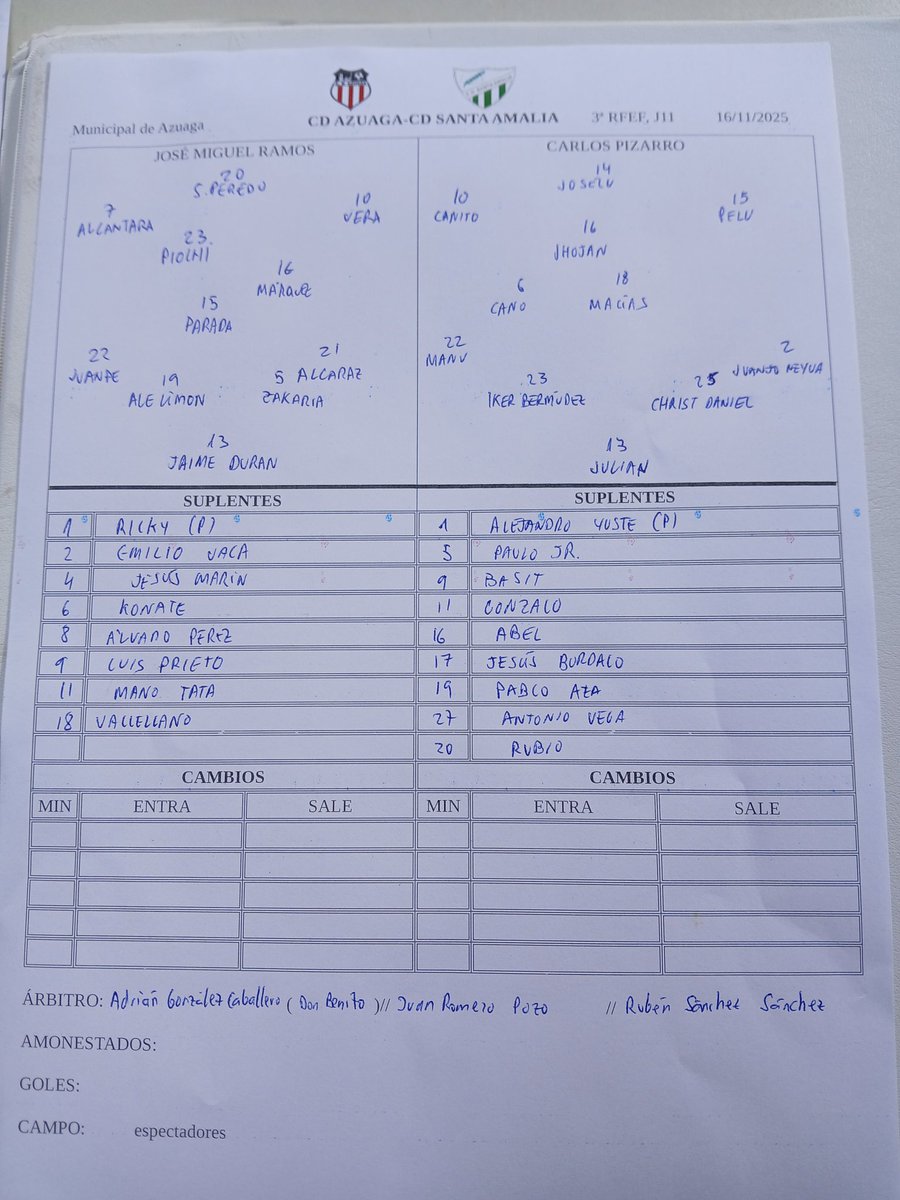 CD AZUAGA-CD SANTA AMALIA 3ª RFEF, J11 16/11/2025
Municipal de Azuaga
JOSÉ MIGUEL RAMOS
20
S. PEREDO
7
ALCANTARA
10
VERA
23
PIOLHI
16
MÁRQUEZ
15
PARADA
22
JUANPE
21
ALCARAZ
19
ALE LIMON
5
ZAKARIA
13
JAIME DURAN
CARLOS PIZARRO
14
JOSELU
10
CANITO
15
PELU
16
JHOJAN
6
CANO
18
MACÍAS
22
MANU
2
JUANJO NEYVA
23
IKER BERMÚDEZ
25
CHRIST DANIEL
13
JULIAN
SUPLENTES
1 RICKY (P)
2 EMILIO VACA
4 JESÚS MARIN
6 KONATE
8 ÁLVARO PÉREZ
9 LUIS PRIETO
11 MANO TATA
18 VALLELLANO
SUPLENTES
1 ALEJANDRO YUSTE (P)
5 PAULO JR.
9 BASIT
11 GONZALO
16 ABEL
17 JESÚS BURDALO
19 PABLO AZA
27 ANTONIO VEGA
20 RUBIO
CAMBIOS CAMBIOS
MIN ENTRA SALE MIN ENTRA SALE
ÁRBITRO: Adrián González Caballero (Don Benito) // Juan Romero Pozo // Rubén Sánchez Sánchez
AMONESTADOS:
GOLES:
CAMPO: espectadores